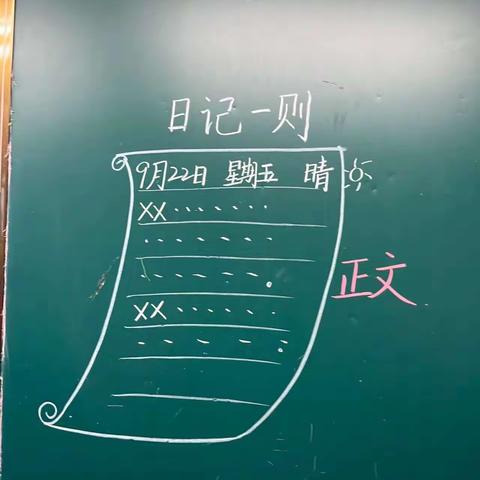 日记一则
9月22日 星期五 晴
XX·······
·······
······。
XX······
······。
正文